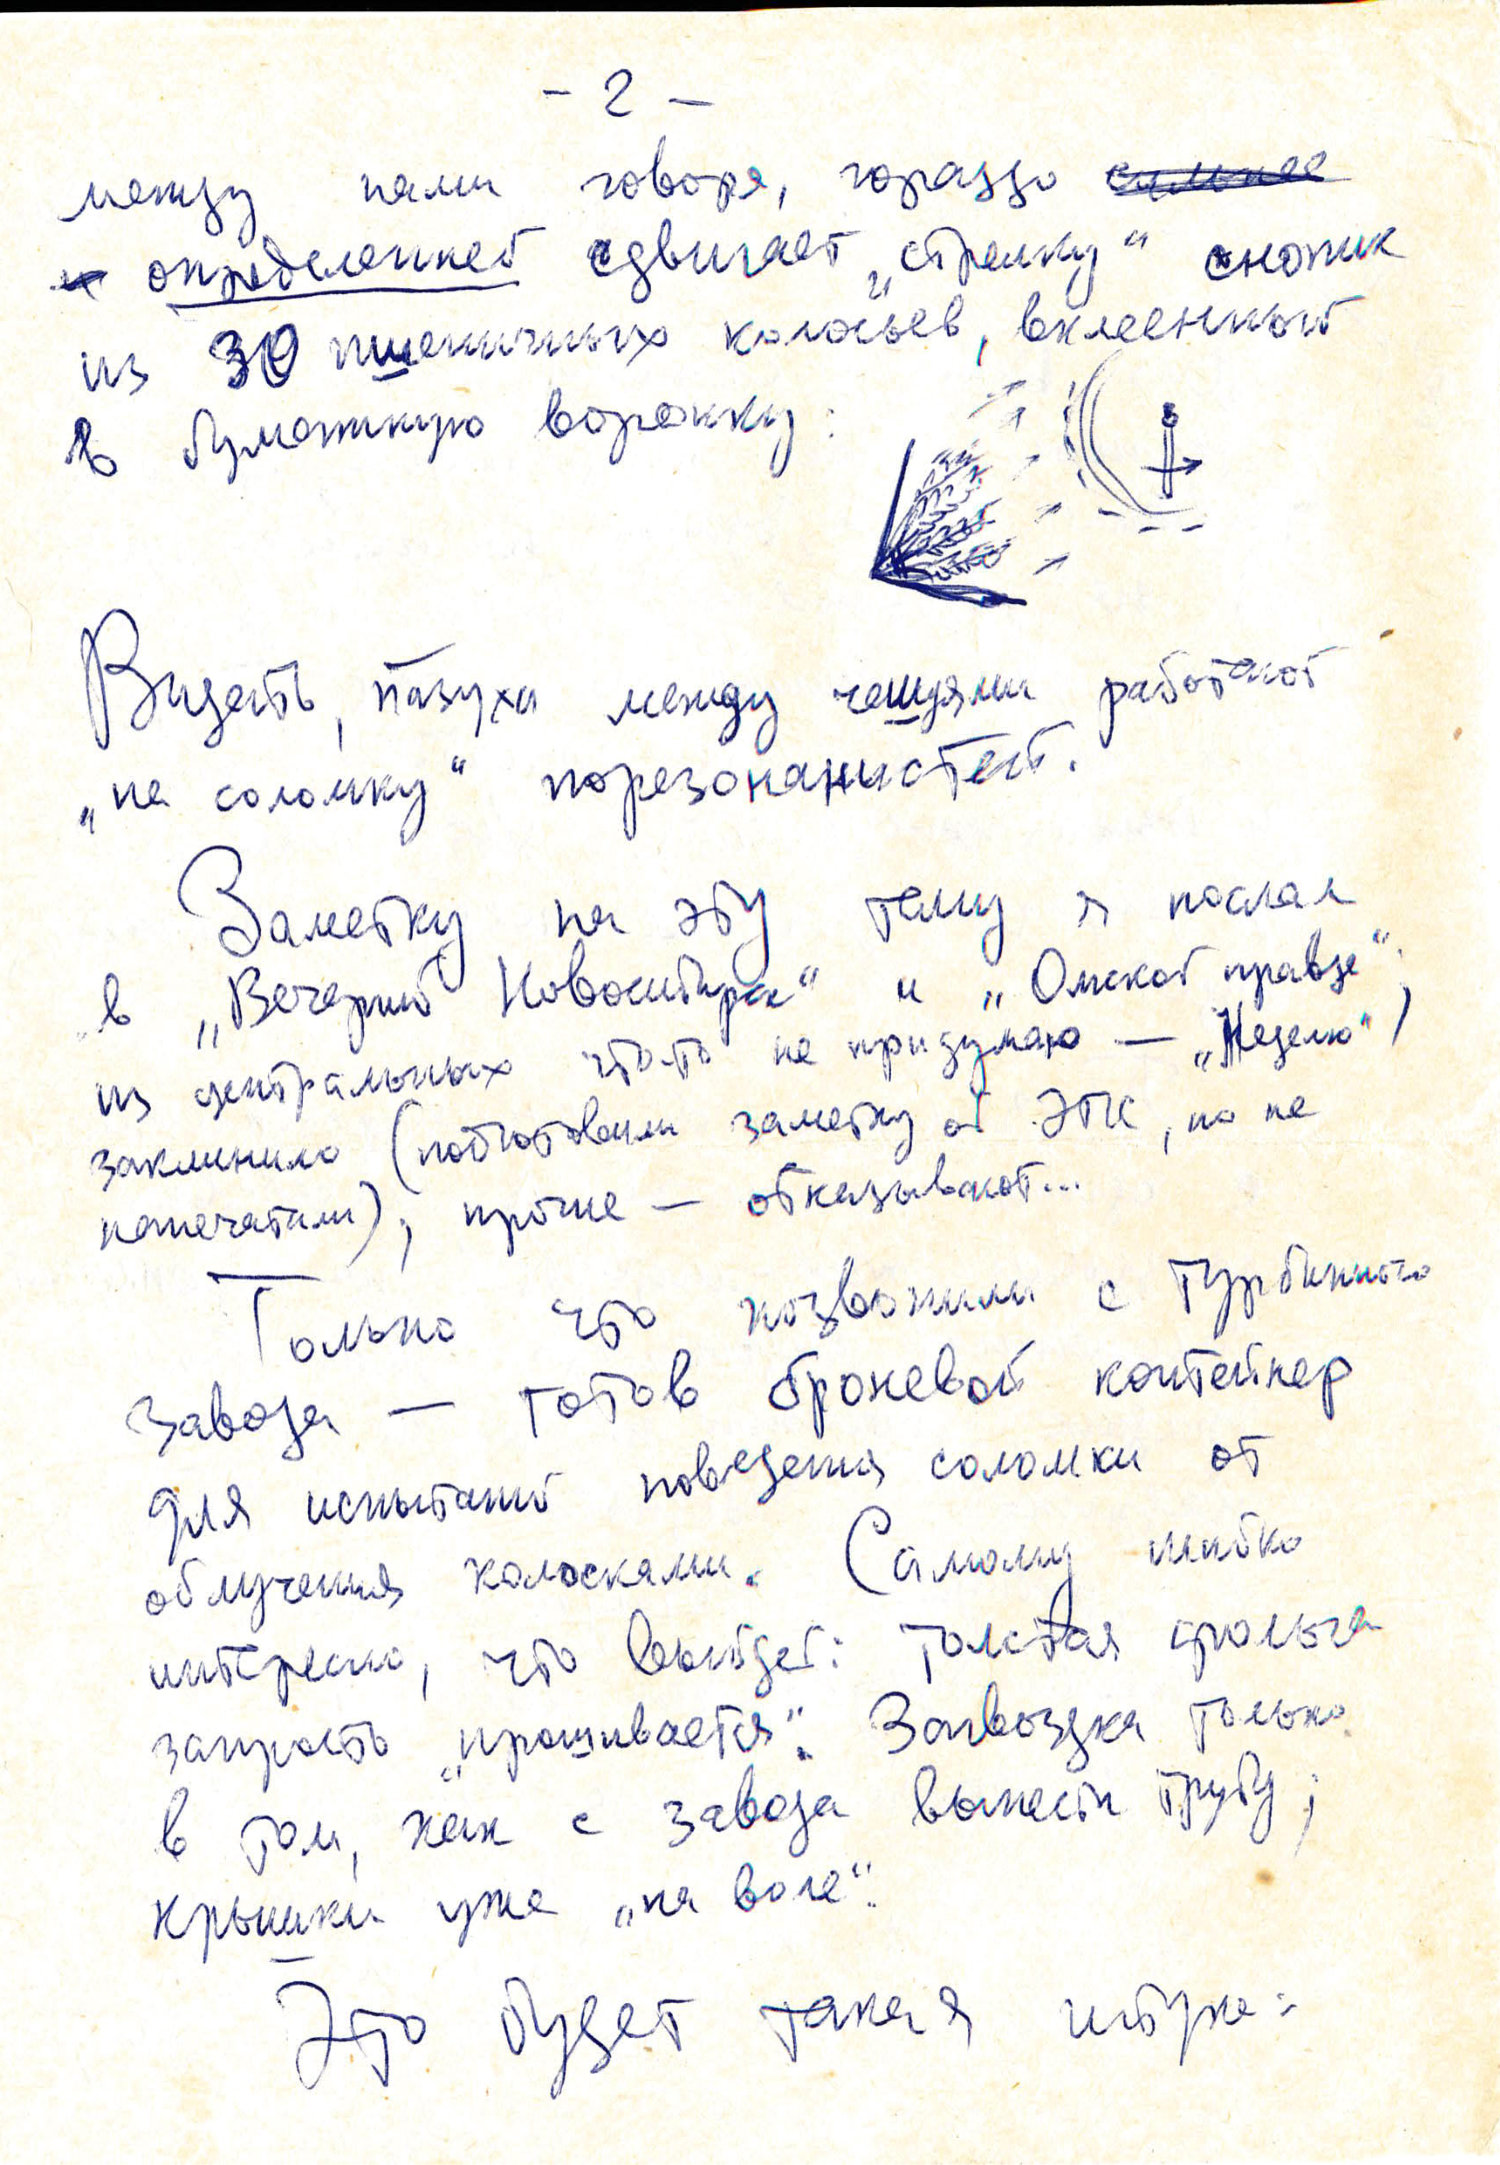 - 2 -
между нами говоря, гораздо сильнее
определенней сдвигает „стрелку“ снопик
из 30 пшеничных колосьев, вклеенный
в бумажную воронку:
Видать, пазухи между чешуями работают
„на соломку“ порезонанистей.
Заметку на эту тему я послал
в „Вечерний Новосибирск“ и „Омской правде“;
из центральных что-то не придумаю — „Неделю“
заклинило (подготовили заметку об ЭПС, но не
напечатали), прочие — отказывают...
Только что позвонили с Турбинного
завода — готов броневой контейнер
для испытаний поведения соломки от
облучения колосками. Самому шибко
интересно, что выйдет: толстая фольга
запросто „прошивается“. Загвоздка только
в том, как с завода вынести трубу;
крышки уже „на воле“.
Это будет такая штука: